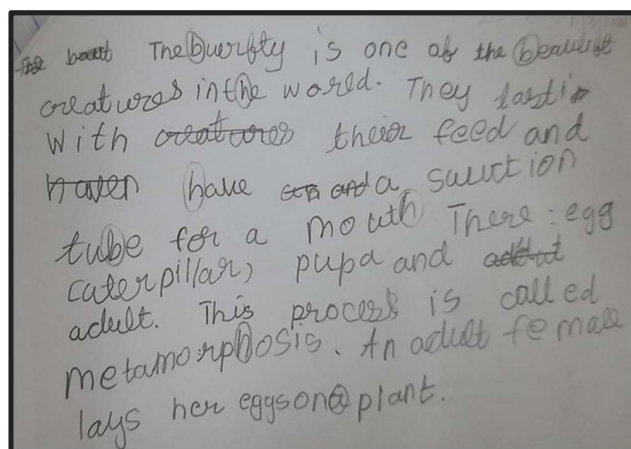 The buerfty is one of the beauust
creatures in the world. They tasti
With their feed and
have a suuction
tube for a mouth There : egg
caterpillar, pupa and
adult. This process is called
metamorphosis. An adult female
lays her eggs on a plant.